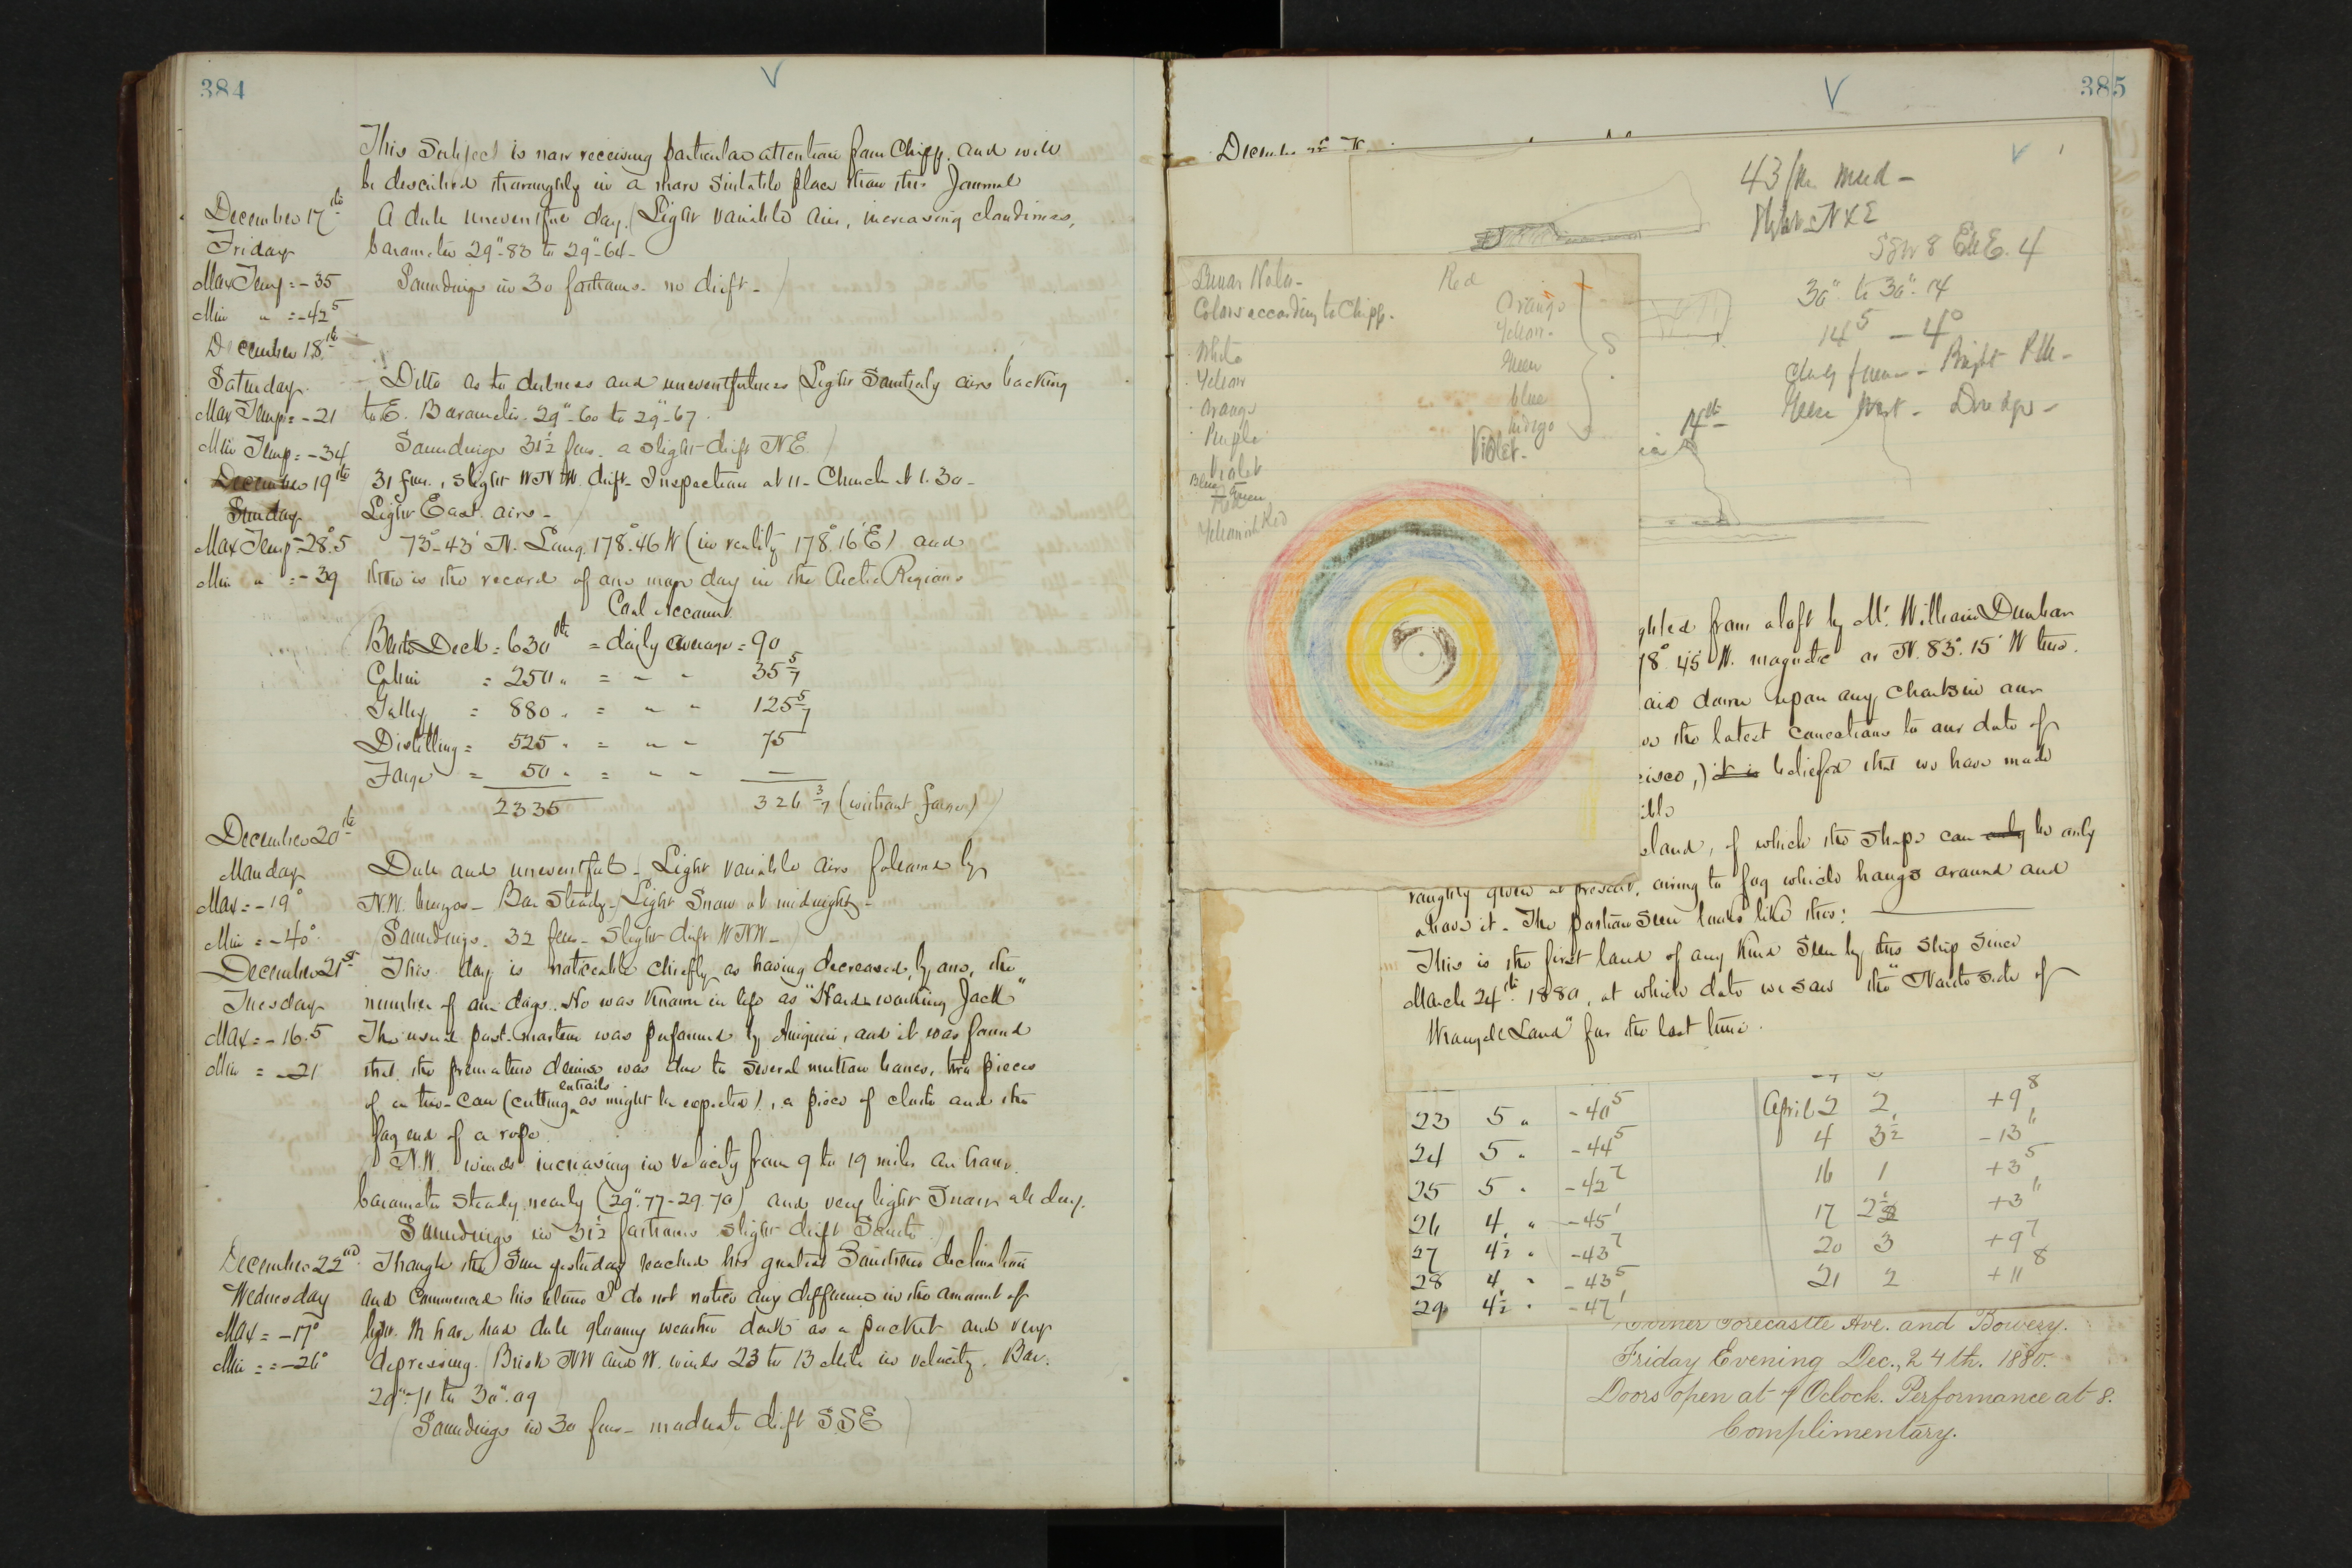 384
This Subject is now receiving particular attention from Chipp. and will
be described thoroughly in a more suitable place than this Journal
December 17th
Friday
Max Temp = -35
Min " = -42⁵
A dull uneventful day. (Light variable airs, increasing cloudiness,
barometer 29"-83 to 29"-64-
Soundings in 30 fathoms. no drift-)
December 18th
Saturday
Max Temp = -21
Min Temp = -34
Ditto as to dulness and uneventfulness (Light Southerly airs backing
to E. Barometer 29"-60 to 29"-67.
Soundings 31½ fms. a slight drift NE)
December 19th
Sunday
Max Temp -28°.5
Min " = -39
31 fms., slight WNW. drift- Inspection at 11- Church at 1.30-
Light East airs-
73°-43' N. Long. 178°.46 W (in reality 178°.16'E) and
this is the record of one more day in the Arctic Regions
Coal Account
Berth Deck = 630 lbs = daily average = 90
Cabin = 250 " = " " 35 5/7
Galley = 880 " = " " 125 5/7
Distilling = 525 " = " " 75
Forge = 50 " = " " —
2335 326 3/7 (without forge)
December 20th
Monday
Max = -19°
Min = -40°
Dull and uneventful- (Light variable airs followed by
N.W. breezes- Bar Steady- Light Snow at midnight-
Soundings. 32 fms- Slight drift WNW-)
December 21st
Tuesday
Max = -16.5
Min = -21
This day is noticeable chiefly as having decreased, by one, the
number of our dogs. He was known in life as "Hard working Jack"
The usual post-mortem was performed by Aneguin, and it was found
that the premature demise was due to several mutton bones, two pieces
of a tin-can (cutting entrails as might be expected), a piece of cloth and the
fag end of a rope.
N.W. winds increasing in velocity from 9 to 19 miles an hour.
barometer steady, nearly (29".77-29.70) and very light Snow all day.
Soundings in 31½ fathoms slight drift South
December 22nd
Wednesday
Max = -17°
Min = -26°
Though the Sun yesterday reached his greatest Southern declination
and commenced his return I do not notice any difference in the amount of
light. We have had dull gloomy weather dark as a pocket and very
depressing. (Brisk NW and W. winds 23 to 13 mile in velocity. Bar.
29"-71 to 30".09
(Soundings in 30 fms- moderate drift SSE)
385
43 fm mud-
NxE
SSW 8 4
30" to 30".14
14⁵ - 4°
- Bright
14th
Dredge-
Lunar Halo-
Colors according to Chipp.
White
Yellow
Orange
Purple
Violet
Blue Green
Red
Yellowish Red
Red
Orange
Yellow
Green
blue
Indigo
Violet-
ghted from aloft by Mr. William Dunbar
78° 45' W. magnetic or N. 83°. 15' W true.
aid down upon any charts in our
the latest corrections to our date of
cisco,) it is believed that we have made
ible
sland, of which the shape can only be only
roughly given at present, owing to fog which hangs around and
above it- The portion seen looks like this:
This is the first land of any kind seen by this ship since
March 24th 1880, at which date we saw the "North side of
Wrangell Land" for the last time.
23 5 " -40⁵ April 2 2 +9⁸
24 5 " -44⁵ 4 3½ -13
25 5 " -42² 16 1 +3⁵
26 4 " -45¹ 17 2½ +3
27 4½ " -43⁷ 20 3 +9⁷
28 4 " -43⁵ 21 2 +11⁸
29 4½ " -47¹
Corner Forecastle Ave. and Bowery.
Friday Evening Dec., 24th. 1880.
Doors open at 7 Oclock. Performance at 8.
Complimentary.